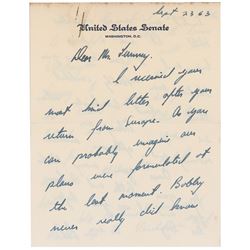 Sept 23 63
United States Senate
WASHINGTON, D.C.
Dear Mr.
I received your
most kind letter after your
return from Europe. As you
can probably imagine our
plans were formulated at
the last moment. Bobby
never really did know